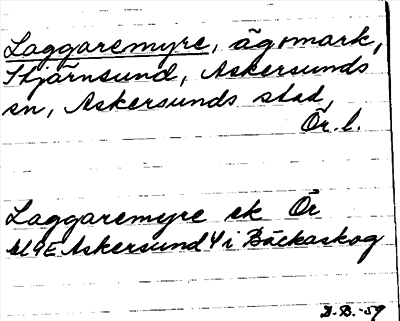 Laggaremyre, ägomark,
Stjärnsund, Askersunds
sn, Askersunds stad,
Ör. l.
Laggaremyre ek Ör
Askersund 4 i Bäckaskog
D.B. -59